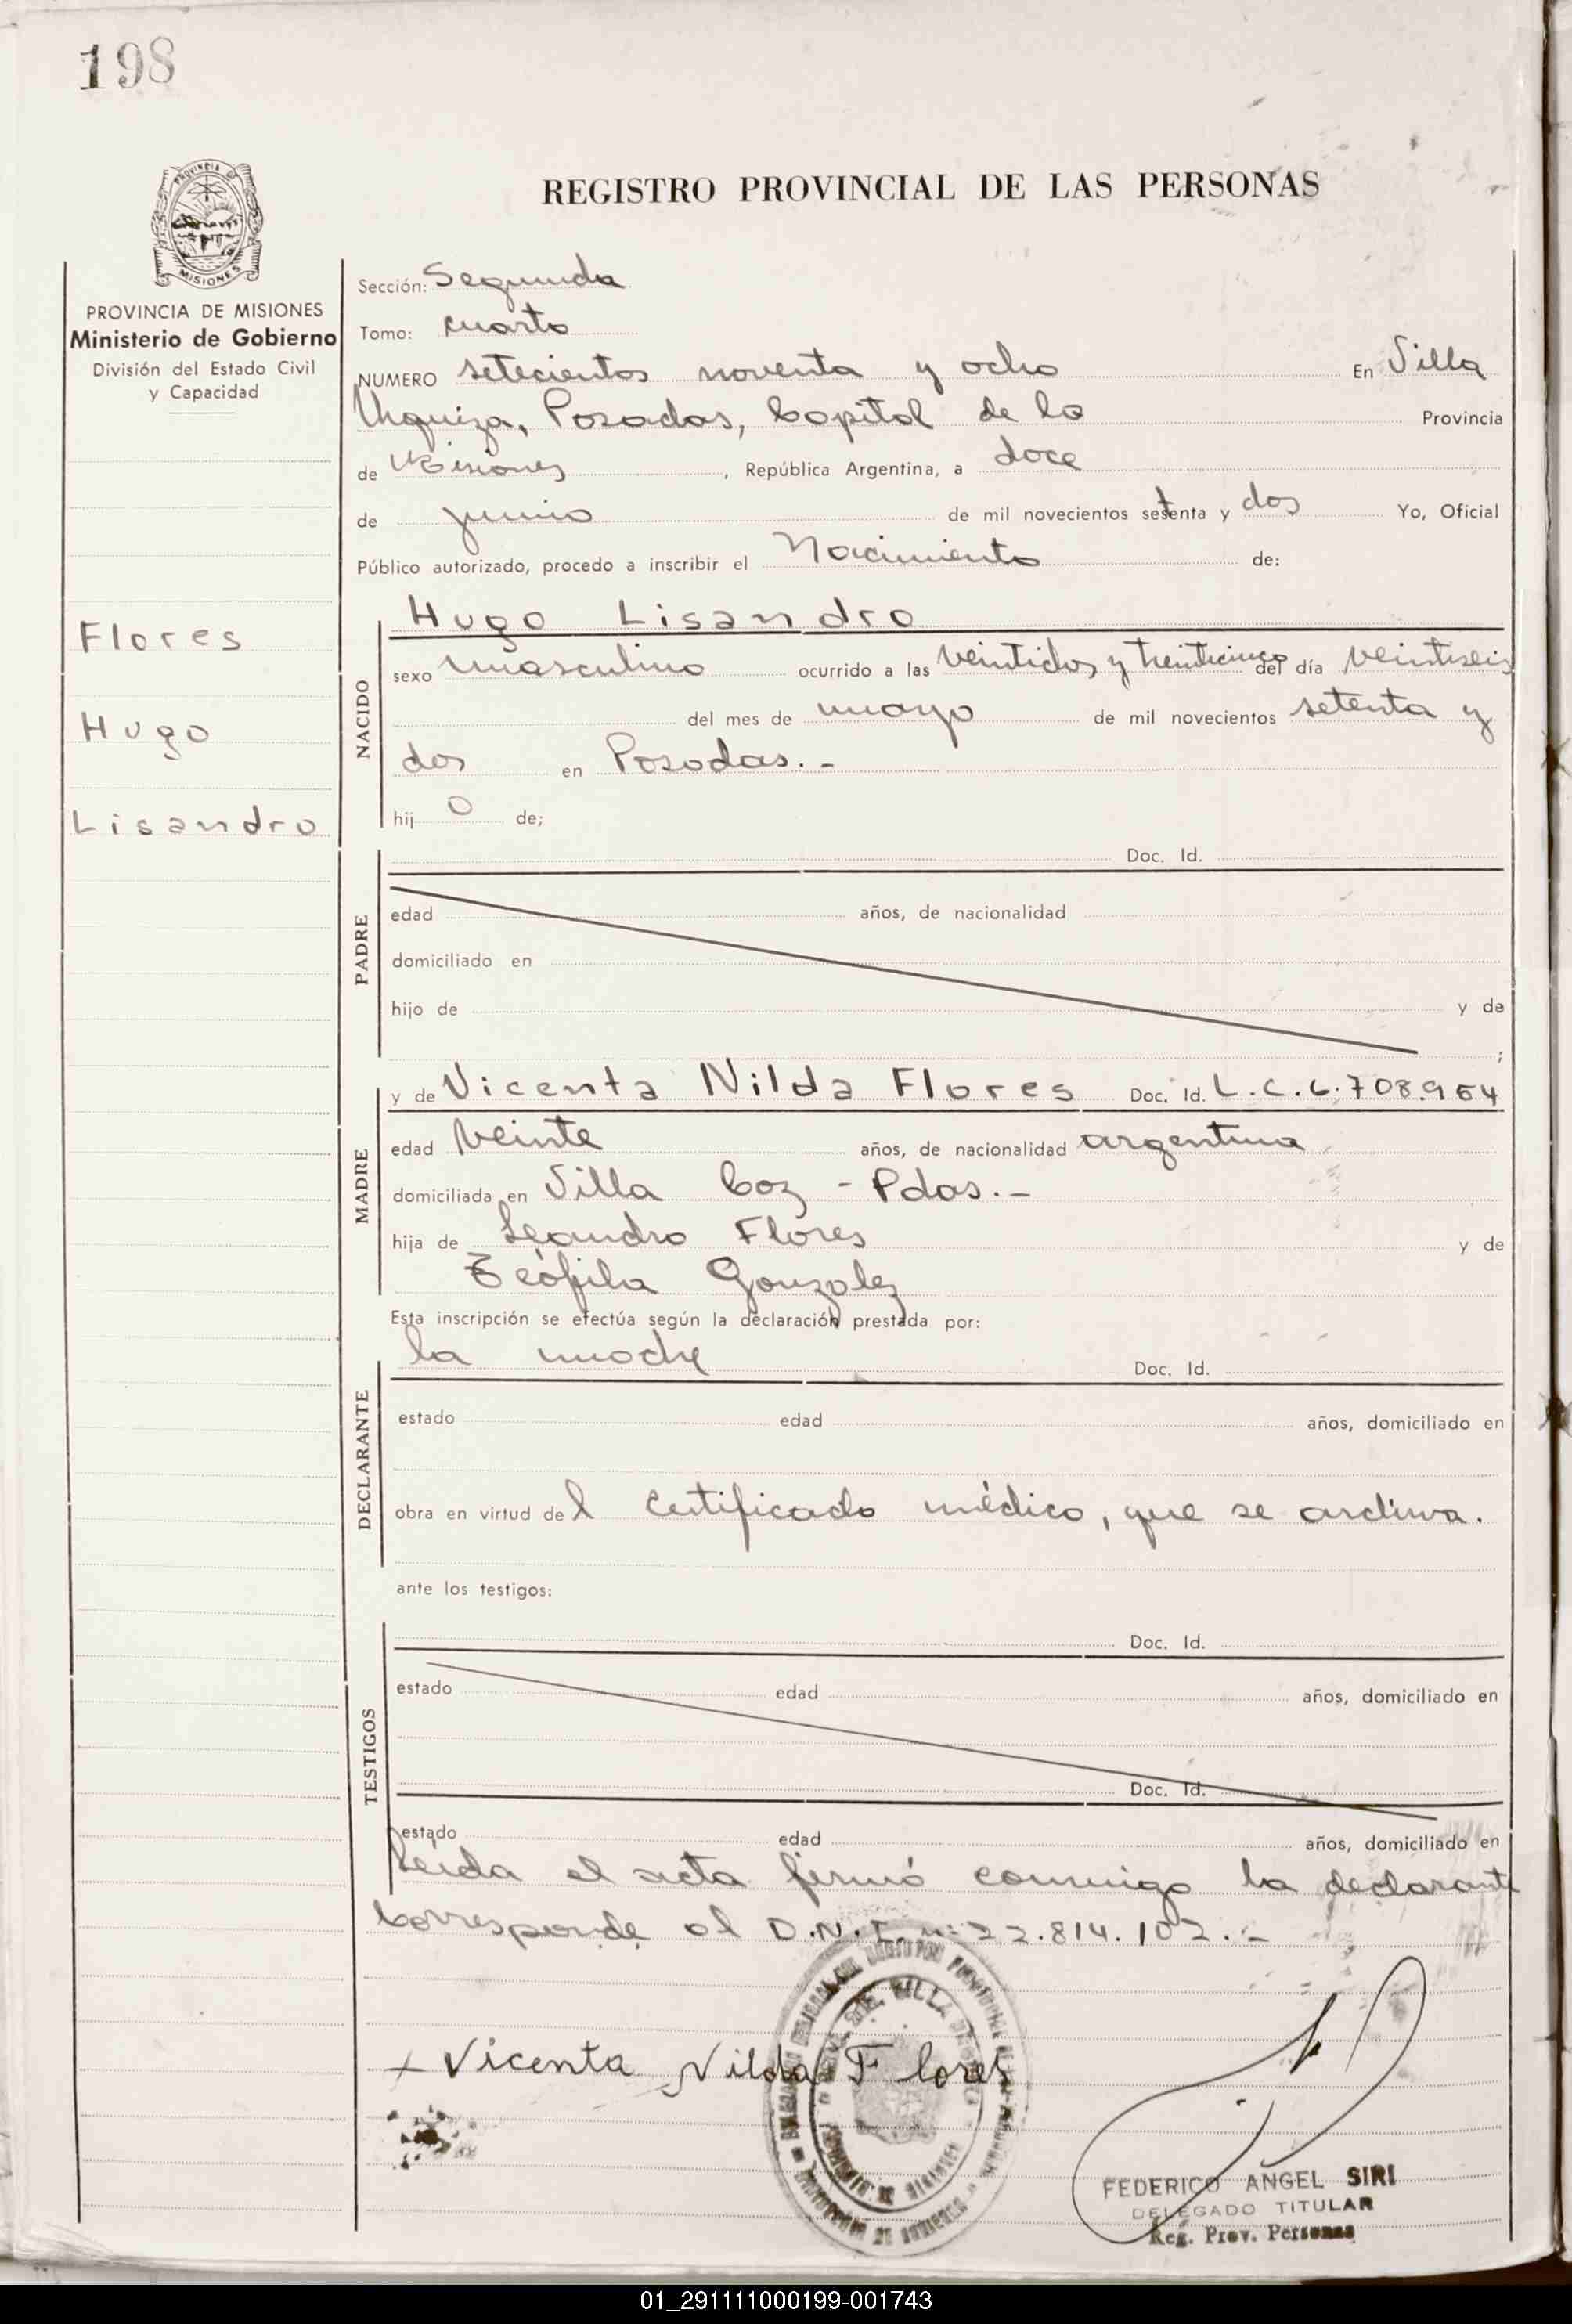 198
PROVINCIA
MISIONES
REGISTRO PROVINCIAL DE LAS PERSONAS
PROVINCIA DE MISIONES
Ministerio de Gobierno
División del Estado Civil
y Capacidad
Flores
Hugo
Lisandro
Sección: Segunda
Tomo: cuarto
NUMERO setecientos noventa y ocho En Villa
Urquiza, Posadas, Capital de la Provincia
de Misiones, República Argentina, a doce
de junio de mil novecientos setenta y dos Yo, Oficial
Público autorizado, procedo a inscribir el Nacimiento de:
NACIDO
Hugo Lisandro
sexo masculino ocurrido a las veintidos y treinticinco del día veintiseis
del mes de mayo de mil novecientos setenta y
dos en Posadas.-
hij o de;
PADRE
Doc. Id.
edad años, de nacionalidad
domiciliado en
hijo de y de
;
MADRE
y de Vicenta Nilda Flores Doc. Id. L.C.6.708.964
edad veinte años, de nacionalidad argentina
domiciliada en Villa Coz - Pdas.-
hija de Leandro Flores y de
Teófila Gonzalez
Esta inscripción se efectúa según la declaración prestada por:
DECLARANTE
la madre Doc. Id.
estado edad años, domiciliado en
obra en virtud del certificado médico, que se archiva.
ante los testigos:
TESTIGOS
Doc. Id.
estado edad años, domiciliado en
Doc. Id.
estado edad años, domiciliado en
Leída el acta firmó conmigo la declarante
Corresponde al D.N.I. n: 22.814.102.-
x Vicenta Nilda Flores
FEDERICO ANGEL SIRI
DELEGADO TITULAR
Reg. Prov. Personas
01_291111000199-001743